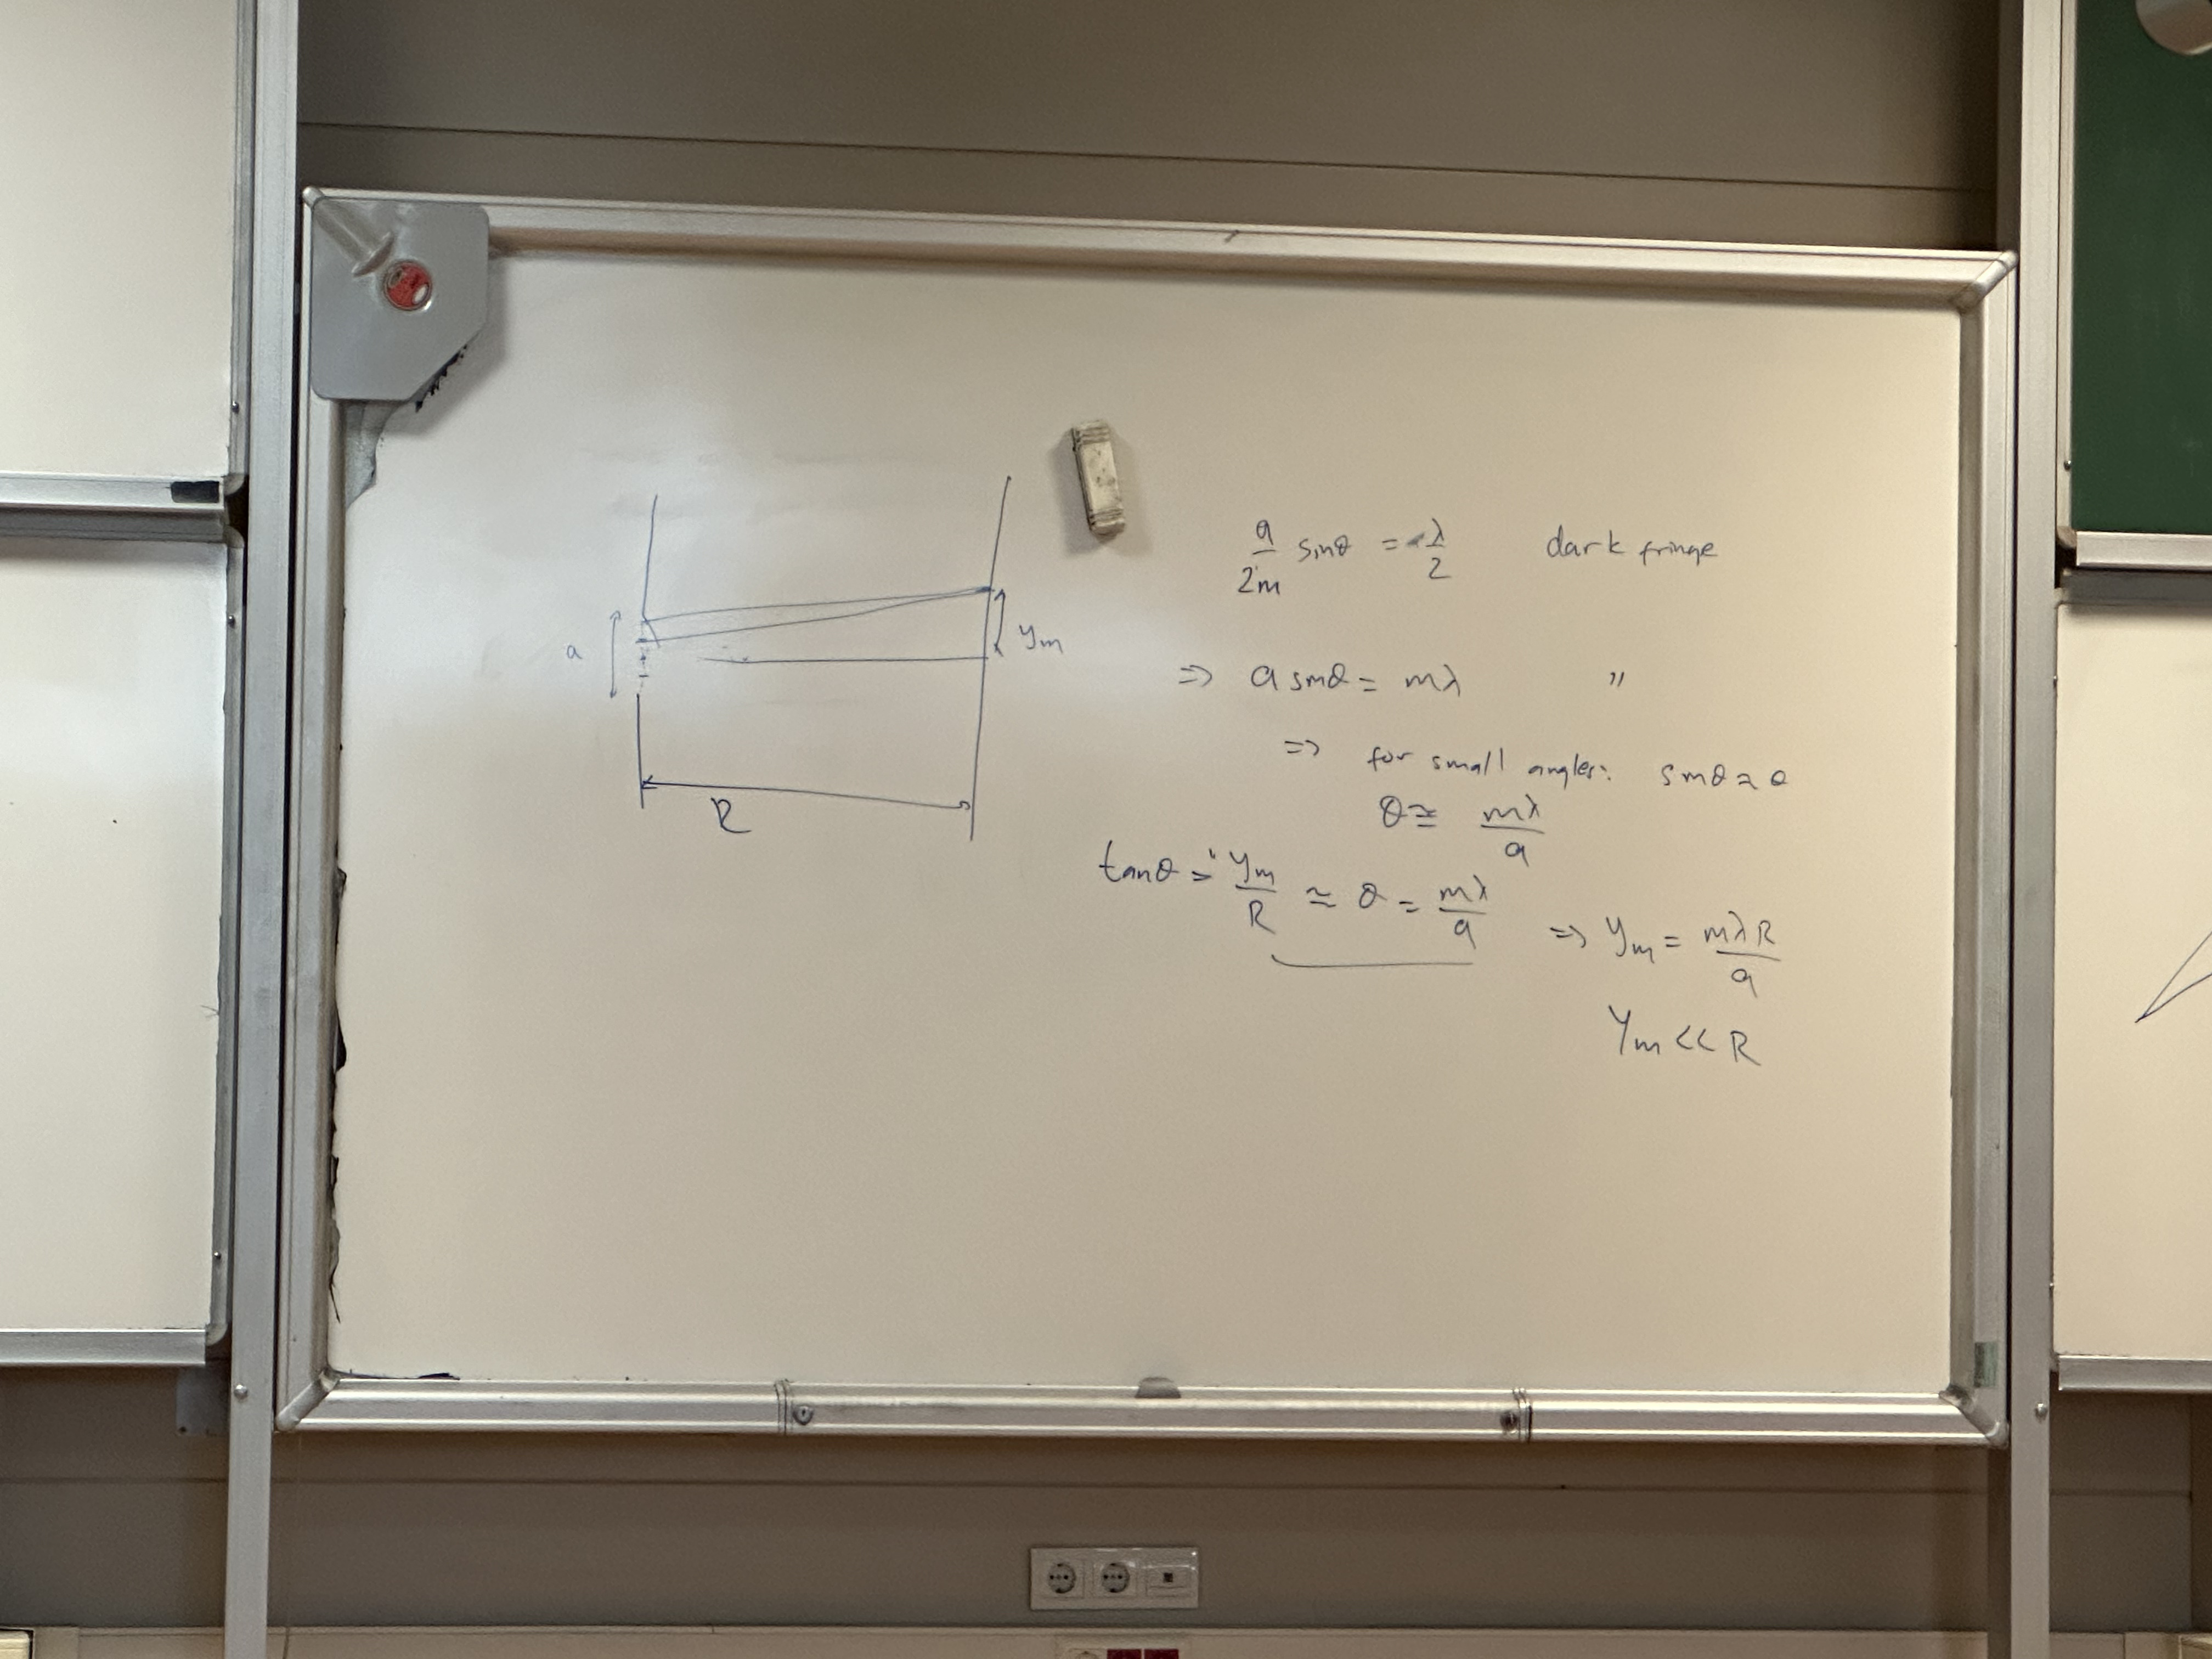 a
y_m
R
a/2m sinθ = λ/2 dark fringe
=> a sinθ = mλ "
=> for small angles: sinθ ≈ θ
θ ≅ mλ/a
tanθ = y_m/R ≅ θ = mλ/a => y_m = mλR/a
y_m << R